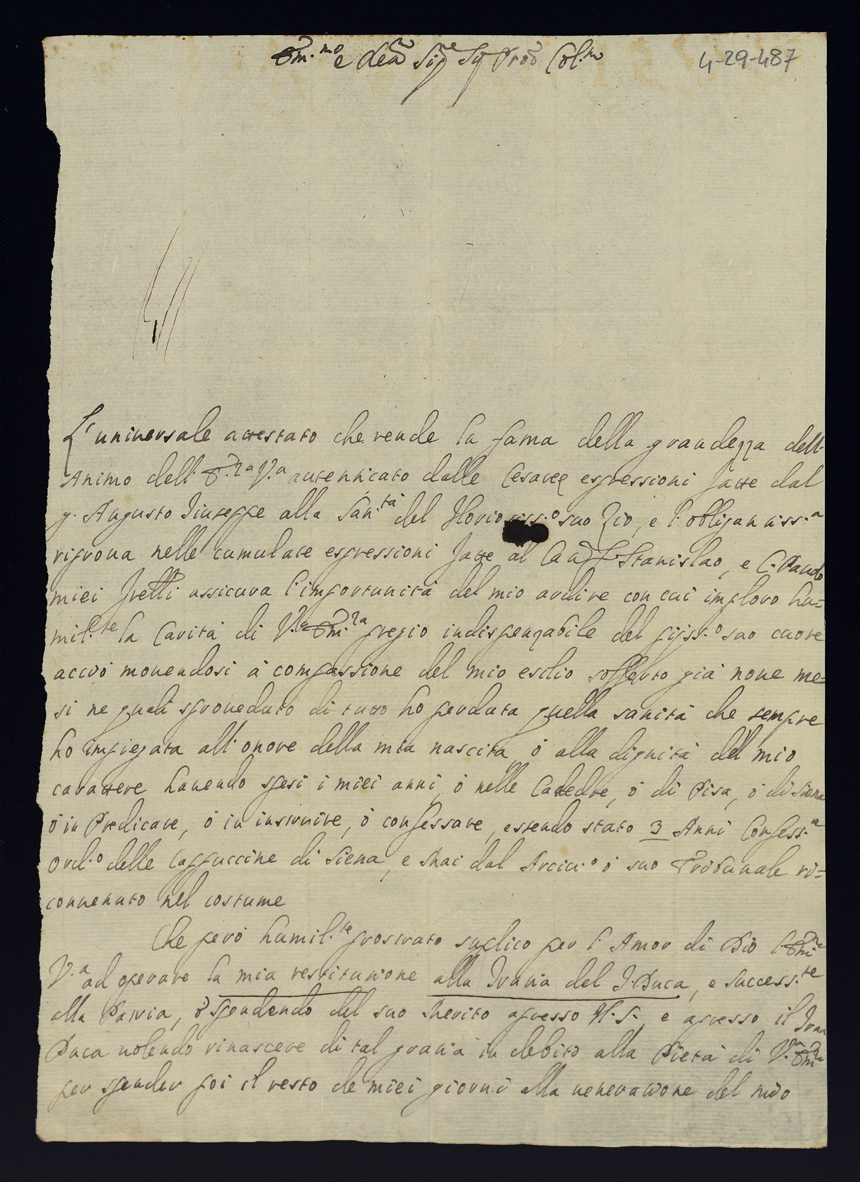 Em.mo e Rev. Sig.re Sig. Pron. Col.mo
4-29-487
L'universale attestato che rende la fama della grandezza dell'
Animo dell' Em.za V.a autenticato dalle Cesaree espressioni fatte dal
g. Augusto Giuseppe alla San.tà del Glorio suo Zio, e l'obligantiss.a
riprova nelle cumulate espressioni fatte al Stanislao, e
miei frelli assicura l'importunità del mio ardire con cui imploro hu=
mil.te la Carità di V.a Em.za pregio indispenzabile del piiss.o suo cuore
acciò movendosi à compassione del mio esilio sofferto già nove me=
si ne quali sproveduto di tutto ho perduta quella sanità che sempre
ho impiegata all'onore della mia nascita ò alla dignità del mio
carattere havendo spesi i miei anni, ò nelle Catedre, ò di Pisa, ò di Siena
ò in Predicare, ò in instruire, ò confessare, essendo stato 3 Anni Confess.e
ord.o delle Cappuccine di Siena, e mai dal Arciv.o ò suo Tribunale ri=
convenuto nel costume
Che però humil.te prostrato suplico per l'Amor di Dio l'Em.za
V.a ad operare la mia restituzione alla Grazia del G Duca, e success.te
alla Patria, spendendo del suo merito apresso N.S. e apresso il Gran
Duca volendo rinascere di tal grazia in debito alla Pietà di V.a Em.za
per spender poi il resto de miei giorni alla venerazione del mio